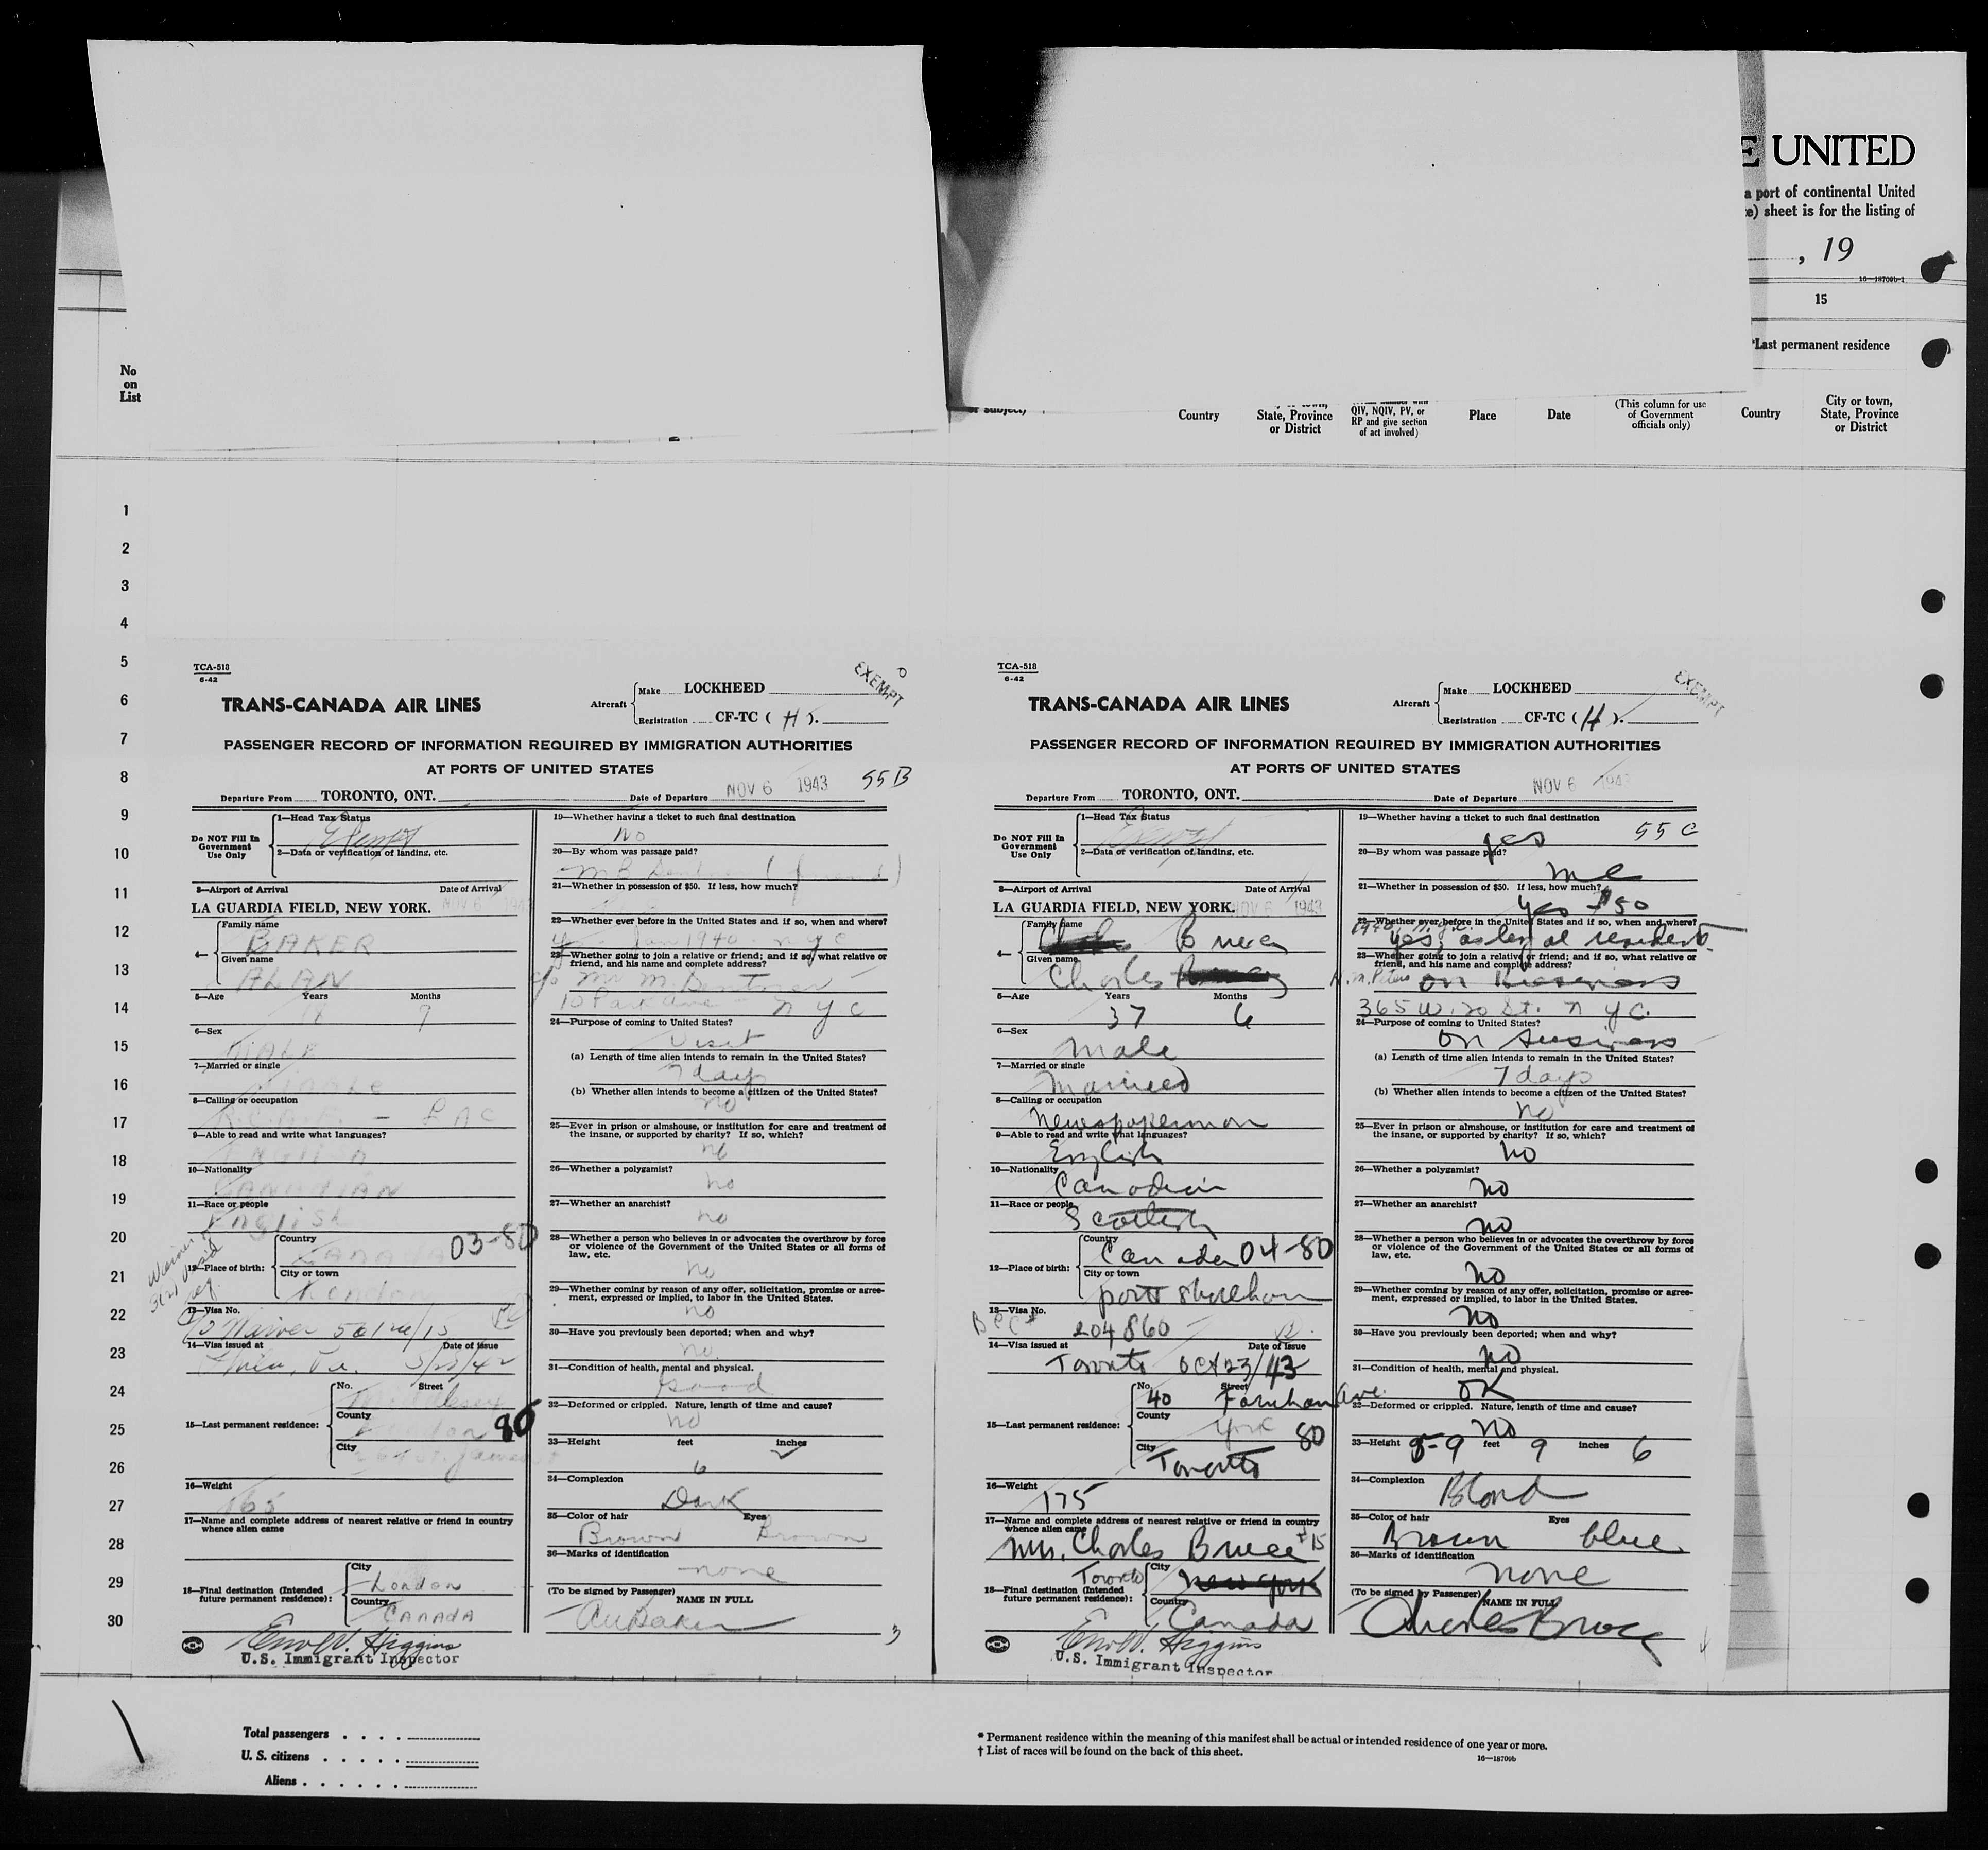 E UNITED
a port of continental United
e) sheet is for the listing of
, 19
16—18709b-1
15
*Last permanent residence
No
on
List
Country
State, Province
or District
QIV, NQIV, PV, or
RP and give section
of act involved)
Place
Date
(This column for use
of Government
officials only)
Country
City or town,
State, Province
or District
1
2
3
4
5
6
7
8
9
10
11
12
13
14
15
16
17
18
19
20
21
22
23
24
25
26
27
28
29
30
TCA-513
6-42
EXEMPT
TRANS-CANADA AIR LINES
Aircraft
Make LOCKHEED
Registration CF-TC (H).
PASSENGER RECORD OF INFORMATION REQUIRED BY IMMIGRATION AUTHORITIES
AT PORTS OF UNITED STATES
55 B
Departure From TORONTO, ONT. Date of Departure NOV 6 1943
Do NOT Fill In
Government
Use Only
1—Head Tax Status
Exempt
2—Data or verification of landing, etc.
3—Airport of Arrival Date of Arrival
LA GUARDIA FIELD, NEW YORK. NOV 6 1943
4—
Family name
BAKER
Given name
ALAN
5—Age Years Months
7
6—Sex
MALE
7—Married or single
SINGLE
8—Calling or occupation
R.C.A.F. - LAC
9—Able to read and write what languages?
ENGLISH
10—Nationality
CANADIAN
11—Race or people
English
12—Place of birth:
Country
CANADA 03-80
City or town
London
13—Visa No.
14—Visa issued at Date of Issue
5/28/42
15—Last permanent residence:
No. Street
County
80
City
16—Weight
165
17—Name and complete address of nearest relative or friend in country
whence alien came
18—Final destination (Intended
future permanent residence):
City
London
Country
CANADA
Higgins
U.S. Immigrant Inspector
19—Whether having a ticket to such final destination
No
20—By whom was passage paid?
21—Whether in possession of $50. If less, how much?
22—Whether ever before in the United States and if so, when and where?
Jan 1940 - N Y C
23—Whether going to join a relative or friend; and if so, what relative or
friend, and his name and complete address?
10 Park Ave - N Y C
24—Purpose of coming to United States?
Visit
(a) Length of time alien intends to remain in the United States?
7 days
(b) Whether alien intends to become a citizen of the United States?
no
25—Ever in prison or almshouse, or institution for care and treatment of
the insane, or supported by charity? If so, which?
no
26—Whether a polygamist?
no
27—Whether an anarchist?
no
28—Whether a person who believes in or advocates the overthrow by force
or violence of the Government of the United States or all forms of
law, etc.
no
29—Whether coming by reason of any offer, solicitation, promise or agree-
ment, expressed or implied, to labor in the United States.
no
30—Have you previously been deported; when and why?
no
31—Condition of health, mental and physical.
Good
32—Deformed or crippled. Nature, length of time and cause?
no
33—Height feet inches
6
34—Complexion
Dark
35—Color of hair Eyes
Brown Brown
36—Marks of identification
none
(To be signed by Passenger) NAME IN FULL
TCA-518
6-42
EXEMPT
TRANS-CANADA AIR LINES
Aircraft
Make LOCKHEED
Registration CF-TC (H).
PASSENGER RECORD OF INFORMATION REQUIRED BY IMMIGRATION AUTHORITIES
AT PORTS OF UNITED STATES
Departure From TORONTO, ONT. Date of Departure NOV 6 1943
Do NOT Fill In
Government
Use Only
1—Head Tax Status
Exempt
2—Data or verification of landing, etc.
3—Airport of Arrival Date of Arrival
LA GUARDIA FIELD, NEW YORK. NOV 6 1943
4—
Family name
Bruce
Given name
Charles
5—Age Years Months
37 6
6—Sex
Male
7—Married or single
Married
8—Calling or occupation
Newspaperman
9—Able to read and write what languages?
English
10—Nationality
Canadian
11—Race or people
Scottish
12—Place of birth:
Country
Canada 04-80
City or town
port Shoreham
13—Visa No.
204860
14—Visa issued at Date of Issue
Toronto Oct 23/43
15—Last permanent residence:
No. Street
40 Farnham Ave.
County
York 80
City
Toronto
16—Weight
175
17—Name and complete address of nearest relative or friend in country
whence alien came
Mrs. Charles Bruce #15
18—Final destination (Intended
future permanent residence):
City
Toronto New York
Country
Canada
Higgins
U.S. Immigrant Inspector
19—Whether having a ticket to such final destination
yes 55 C
20—By whom was passage paid?
me
21—Whether in possession of $50. If less, how much?
yes $50
22—Whether ever before in the United States and if so, when and where?
yes, as legal resident
23—Whether going to join a relative or friend; and if so, what relative or
friend, and his name and complete address?
on Business
365 W. 20 St. N Y C.
24—Purpose of coming to United States?
on business
(a) Length of time alien intends to remain in the United States?
7 days
(b) Whether alien intends to become a citizen of the United States?
no
25—Ever in prison or almshouse, or institution for care and treatment of
the insane, or supported by charity? If so, which?
no
26—Whether a polygamist?
no
27—Whether an anarchist?
no
28—Whether a person who believes in or advocates the overthrow by force
or violence of the Government of the United States or all forms of
law, etc.
no
29—Whether coming by reason of any offer, solicitation, promise or agree-
ment, expressed or implied, to labor in the United States.
no
30—Have you previously been deported; when and why?
no
31—Condition of health, mental and physical.
OK
32—Deformed or crippled. Nature, length of time and cause?
no
33—Height 5-9 feet 9 inches 6
34—Complexion
Blond
35—Color of hair Eyes
Brown blue
36—Marks of identification
none
(To be signed by Passenger) NAME IN FULL
Charles Bruce
Total passengers
U. S. citizens
Aliens
* Permanent residence within the meaning of this manifest shall be actual or intended residence of one year or more.
† List of races will be found on the back of this sheet.
16—18709b